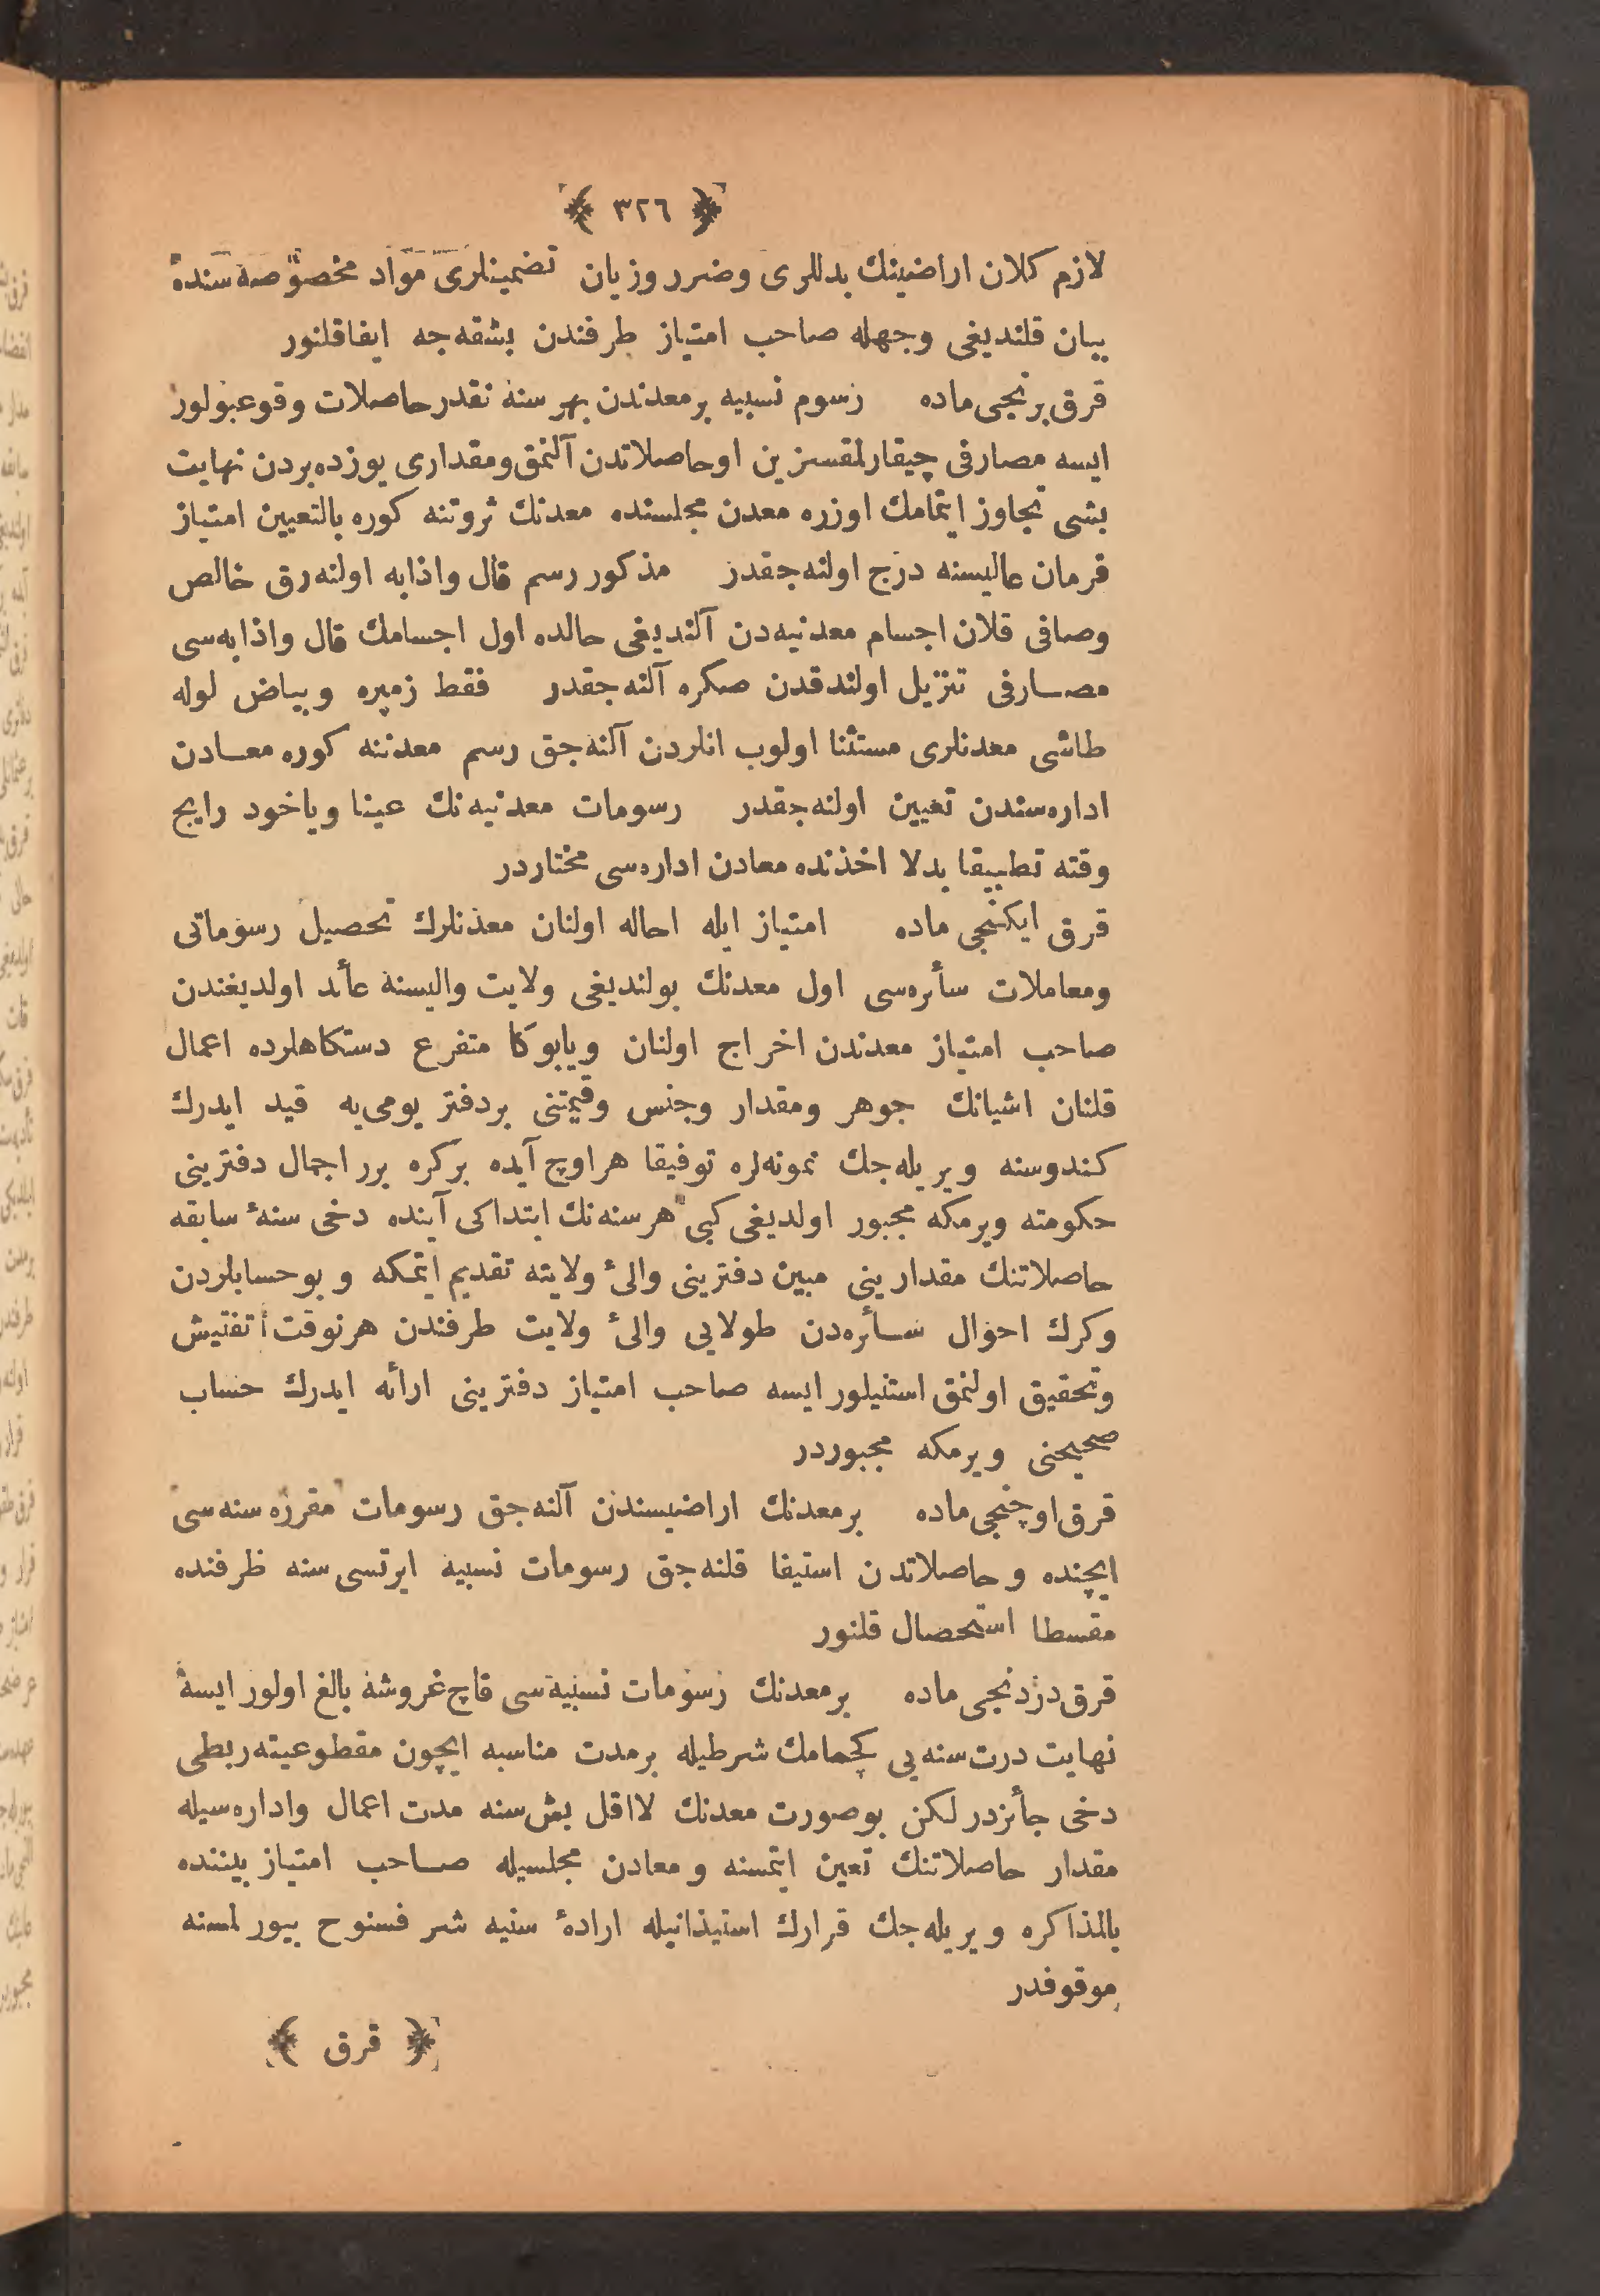 ﴿ ٣٢٦ ﴾
لازم كلان اراضينك بدللرى وضرر وزيان تضمينلرى مواد مخصوصه سنده
بيان قلنديغى وجهله صاحب امتياز طرفندن بشقه جه ايفاقلنور
قرق برنجى ماده رسوم نسبيه برمعدندن بهر سنه نقدر حاصلات وقوعبولور
ايسه مصارفى چيقارلمقسزين اوحاصلاتدن آلنمق ومقدارى يوزده بردن نهايت
بشى تجاوز ايتمامك اوزره معدن مجلسنده معدنك ثروتنه كوره بالتعيين امتياز
فرمان عاليسنه درج اولنه جقدر مذكور رسم قال واذابه اولنه رق خالص
وصافى قلان اجسام معدنيه دن آلنديغى حالده اول اجسامك قال واذابه سى
مصارفى تنزيل اولندقدن صكره آلنه جقدر فقط زمپره وبياض لوله
طاشى معدنلرى مستثنا اولوب انلردن آلنه جق رسم معدننه كوره معادن
اداره سندن تعيين اولنه جقدر رسومات معدنيه نك عينا وياخود رايج
وقته تطبيقا بدلا اخذنده معادن اداره سى مختاردر
قرق ايكنجى ماده امتياز ايله احاله اولنان معدنلرك تحصيل رسوماتى
ومعاملات سائره سى اول معدنك بولنديغى ولايت واليسنه عائد اولديغندن
صاحب امتياز معدندن اخراج اولنان ويابوكا متفرع دستكاهلرده اعمال
قلنان اشيانك جوهر ومقدار وجنس وقيمتنى بردفتر يومى يه قيد ايدرك
كندوسنه ويريله جك نمونه لره توفيقا هر اوچ آيده بركره برر اجمال دفترينى
حكومته ويرمكه مجبور اولديغى كبى هر سنه نك ابتداكى آينده دخى سنهٔ سابقه
حاصلاتنك مقدارينى مبين دفترينى والئ ولايته تقديم ايتمكه و بوحسابلردن
وكرك احوال سائره دن طولايى والئ ولايت طرفندن هرنوقت تفتيش
وتحقيق اولنمق استنيلور ايسه صاحب امتياز دفترينى ارائه ايدرك حساب
صحيحنى ويرمكه مجبوردر
قرق اوچنجى ماده برمعدنك اراضيسندن آلنه جق رسومات مقرره سنه سى
ايچنده و حاصلاتدن استيفا قلنه جق رسومات نسبيه ايرتسى سنه ظرفنده
مقسطا استحصال قلنور
قرق دردنجى ماده برمعدنك رسومات نسبيه سى قاچ غروشه بالغ اولور ايسه
نهايت درت سنه يى كچمامك شرطيله برمدت مناسبه ايچون مقطوعيته ربطى
دخى جائزدر لكن بوصورت معدنك لااقل بش سنه مدت اعمال واداره سيله
مقدار حاصلاتنك تعين ايتمسنه و معادن مجلسيله صاحب امتياز بيننده
بالمذاكره ويريله جك قرارك استيذانيله ارادهٔ سنيه شر فسنوح بيورلمسنه
موقوفدر
﴿ قرق ﴾